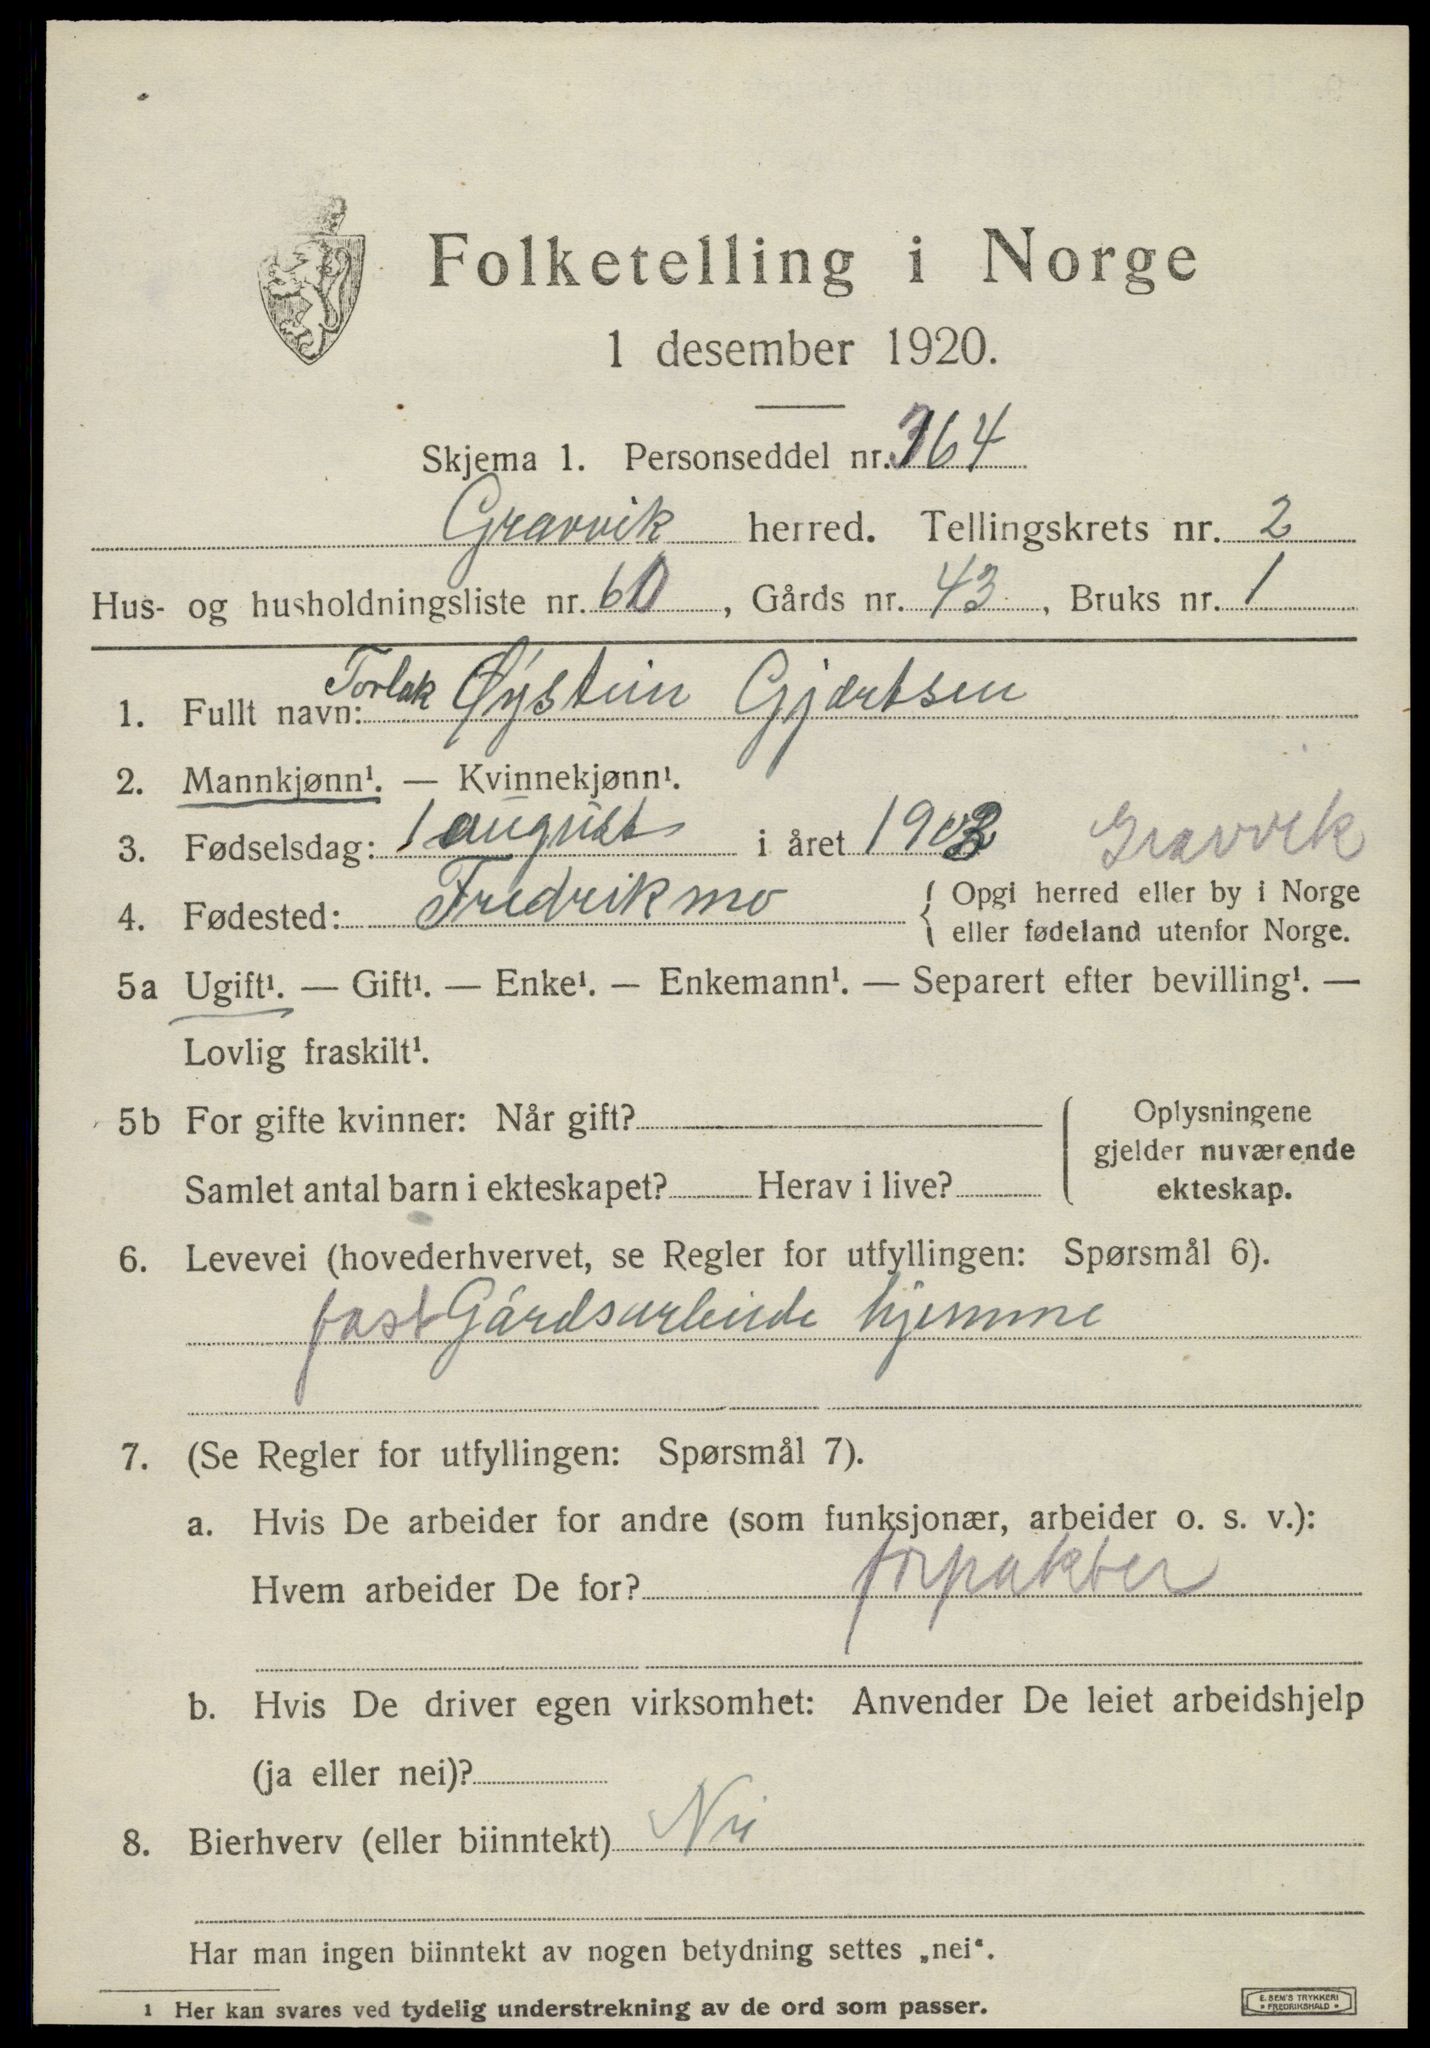 Folketelling i Norge
1 desember 1920.
Skjema 1. Personseddel nr. 364
Gravvik herred. Tellingskrets nr. 2
Hus- og husholdningsliste nr. 60, Gårds nr. 43, Bruks nr. 1
1. Fullt navn: Torlak Øystein Gjærtsen
2. Mannkjønn¹. — Kvinnekjønn¹.
3. Fødselsdag: 1 august i året Gravvik
4. Fødested: Fredrikmo { Opgi herred eller by i Norge
eller fødeland utenfor Norge.
5a Ugift¹. — Gift¹. — Enke¹. — Enkemann¹. — Separert efter bevilling¹. —
Lovlig fraskilt¹.
5b For gifte kvinner: Når gift? { Oplysningene
gjelder nuværende
Samlet antal barn i ekteskapet? Herav i live? ekteskap.
6. Levevei (hovederhvervet, se Regler for utfyllingen: Spørsmål 6).
fast Gårdsarbeide hjemme
7. (Se Regler for utfyllingen: Spørsmål 7).
a. Hvis De arbeider for andre (som funksjonær, arbeider o. s. v.):
Hvem arbeider De for? forpakter
b. Hvis De driver egen virksomhet: Anvender De leiet arbeidshjelp
(ja eller nei)?
8. Bierhverv (eller biinntekt) Nei
Har man ingen biinntekt av nogen betydning settes „nei“.
1 Her kan svares ved tydelig understrekning av de ord som passer.
E. SEM'S TRYKKERI
• FREDRIKSHALD •